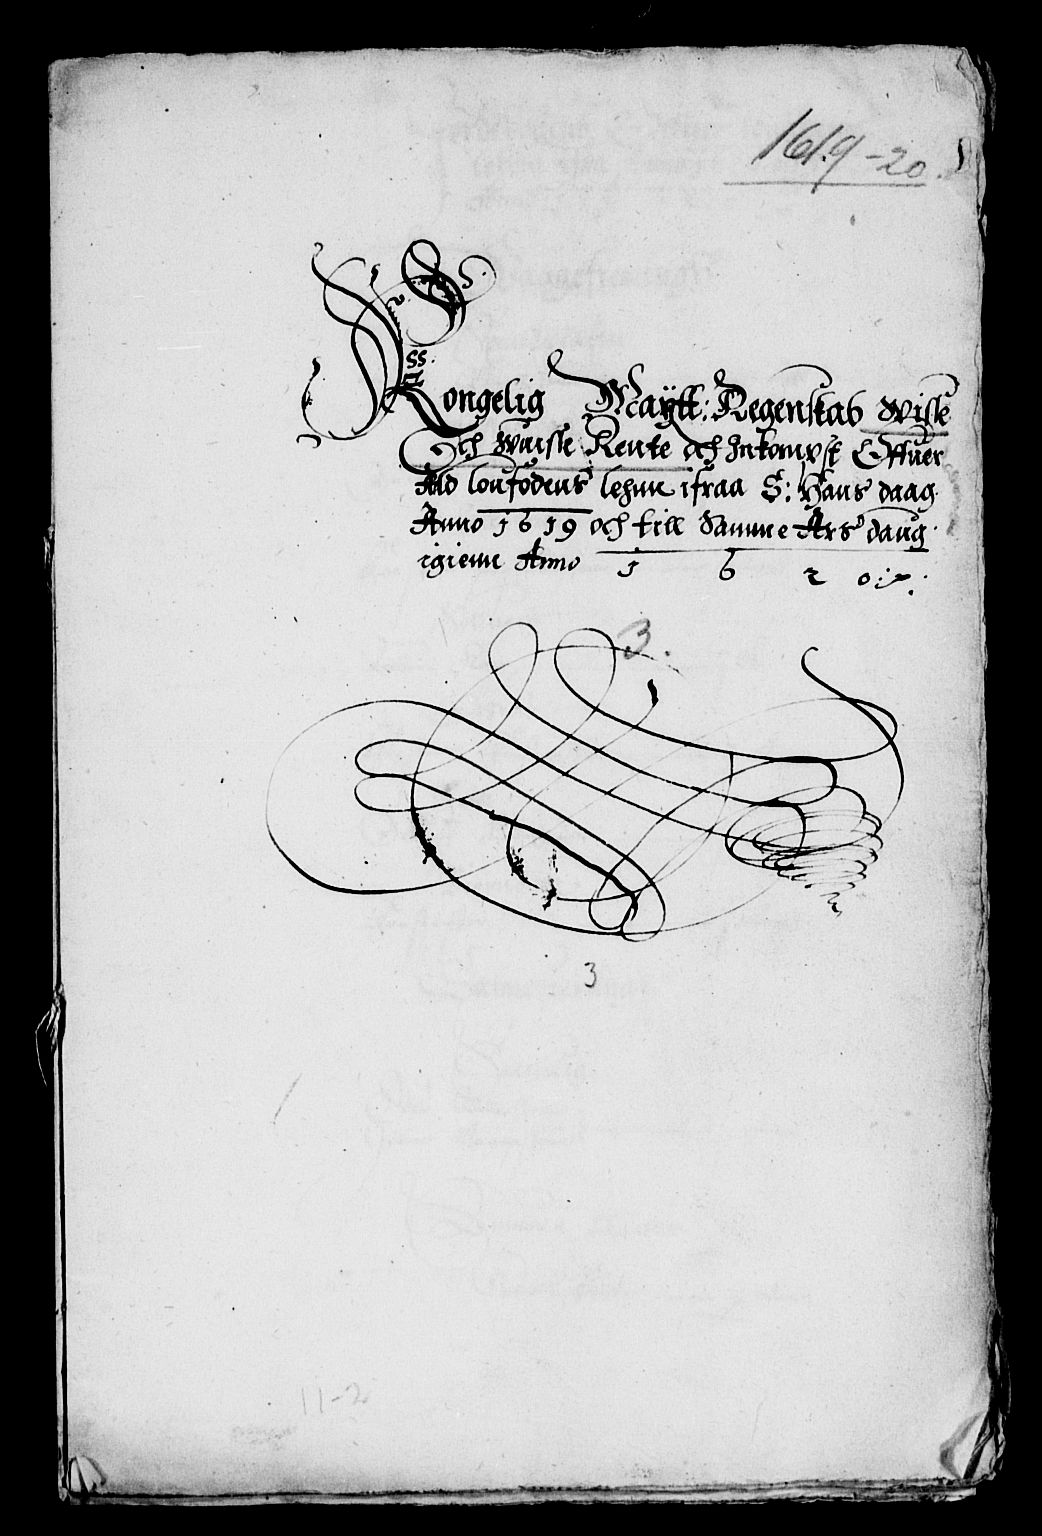 1619-20.
Kongelig Maytt: Regenskab Wisse
Och Wuisse Rente och Inkompst Offuer
Ald loufodens lehnn ifraa S: Hans daag
Anno 1619 och till Samme Ars daug
igienn Anno 1 6 2 0
3.
3
11-2